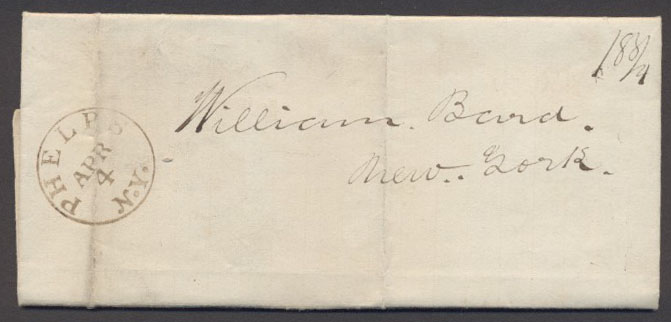 18 3/4
PHELPS
APR
4
N.Y.
William. Bard.
New.. York.